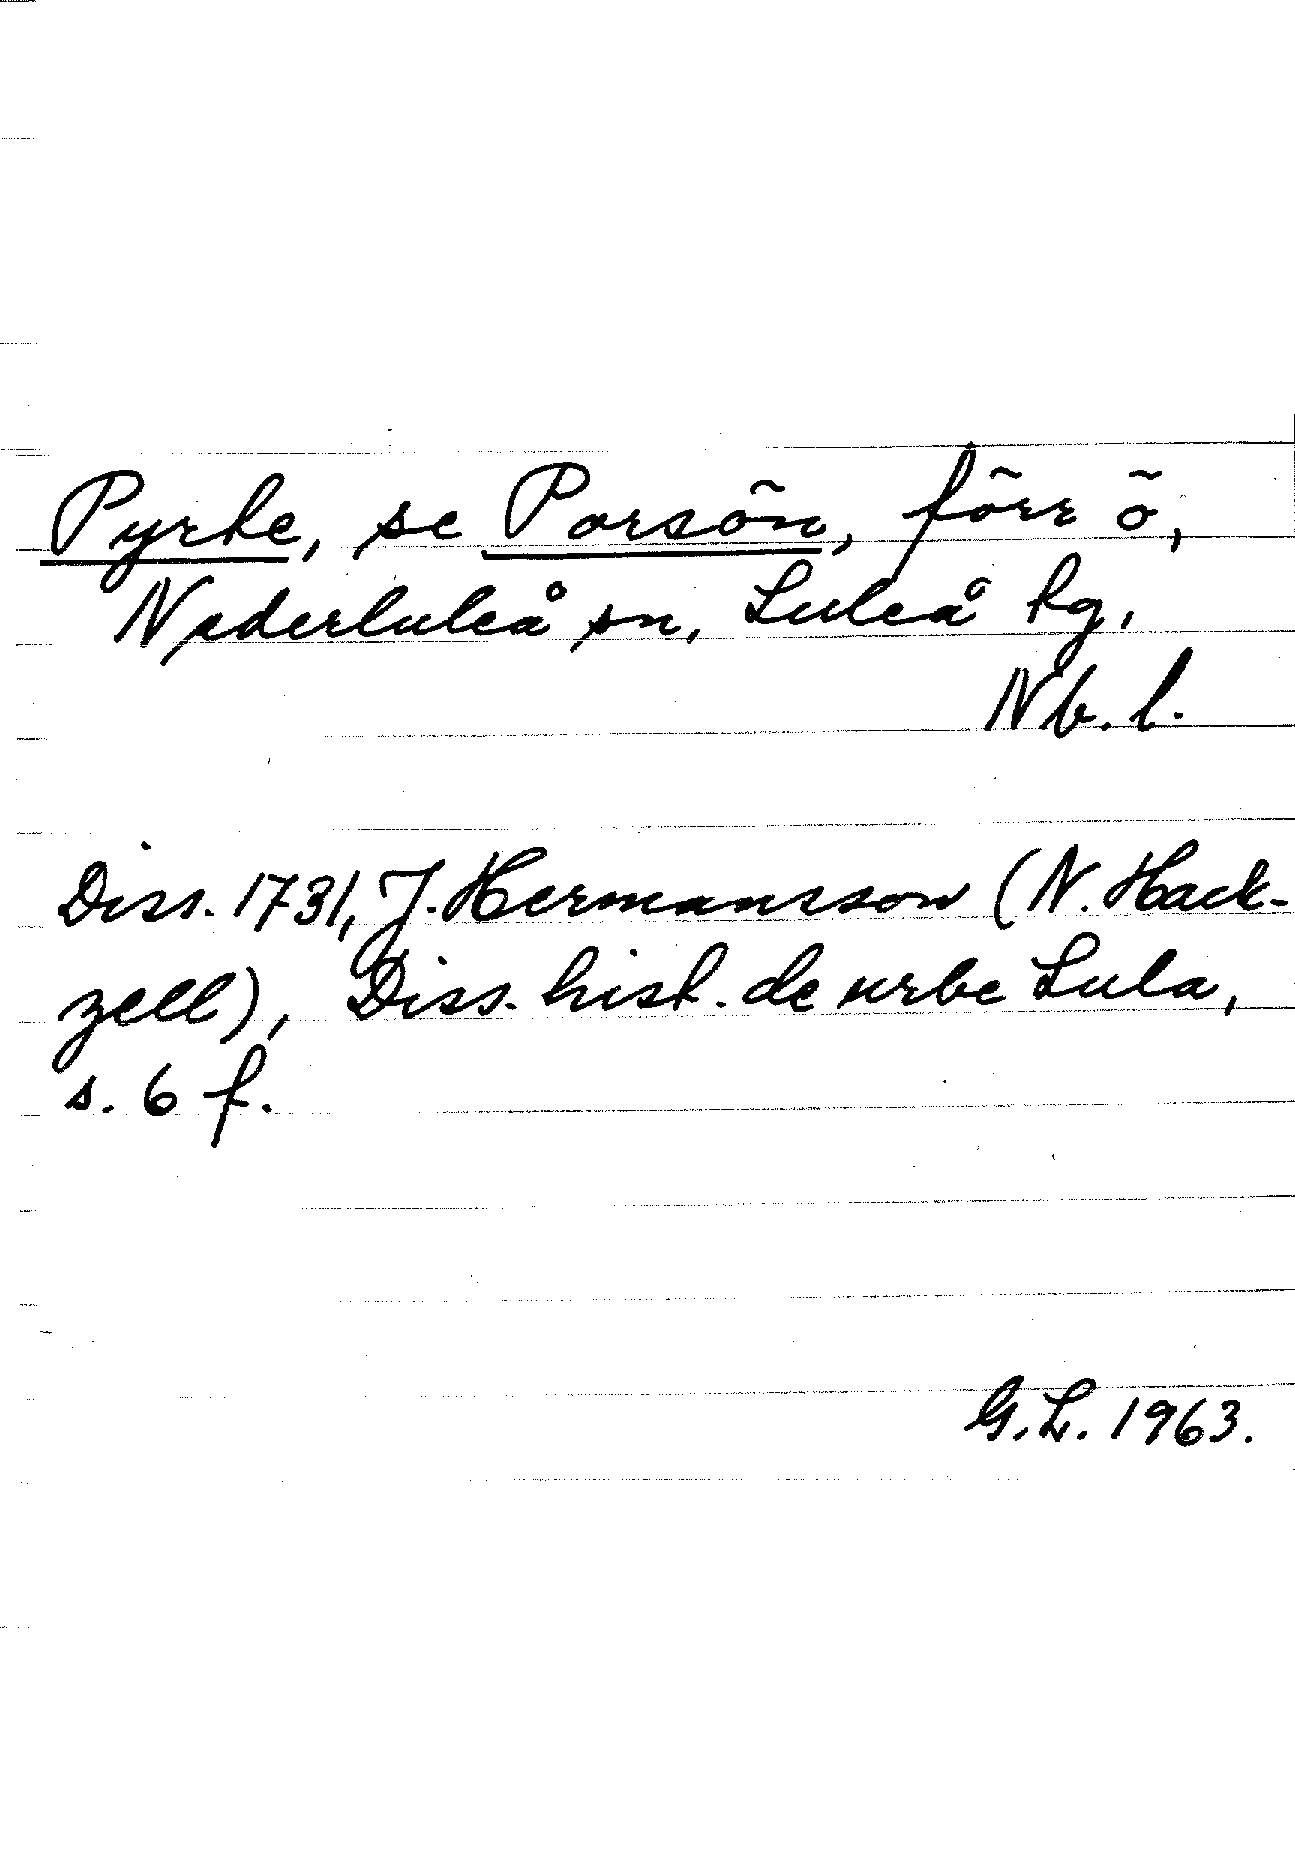 Pyrte, se Porsön, förr ö,
Nederluleå sn, Luleå tg,
Nb. l.
Diss. 1731, J. Hermansson (N. Hack-
zell), Diss. hist. de urbe Lula,
s. 6 f.
G.L. 1963.